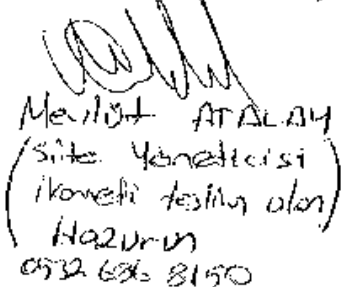 Mevlüt ATALAY
(Site Yöneticisi
ikametli teslim alan)
Hazurun
0532 686 8150